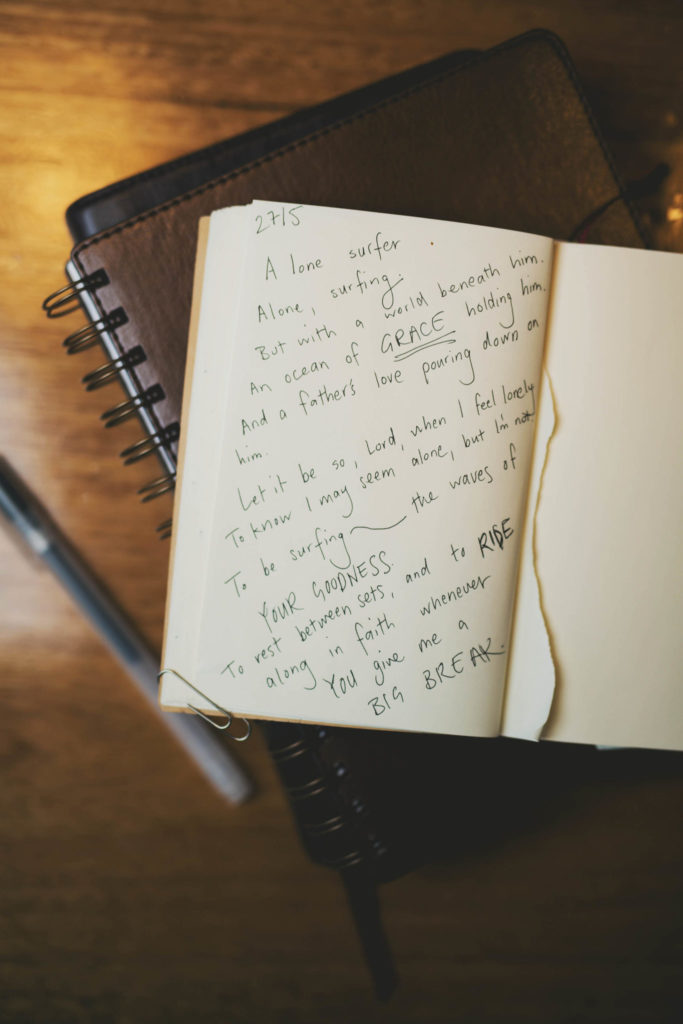 27/5
A lone surfer
Alone, surfing.
But with a world beneath him.
An ocean of GRACE holding him.
And a father's love pouring down on
him.
Let it be so, Lord, when I feel lonely
To know I may seem alone, but I'm not.
To be surfing the waves of
YOUR GOODNESS.
To rest between sets, and to RIDE
along in faith whenever
YOU give me a
BIG BREAK.